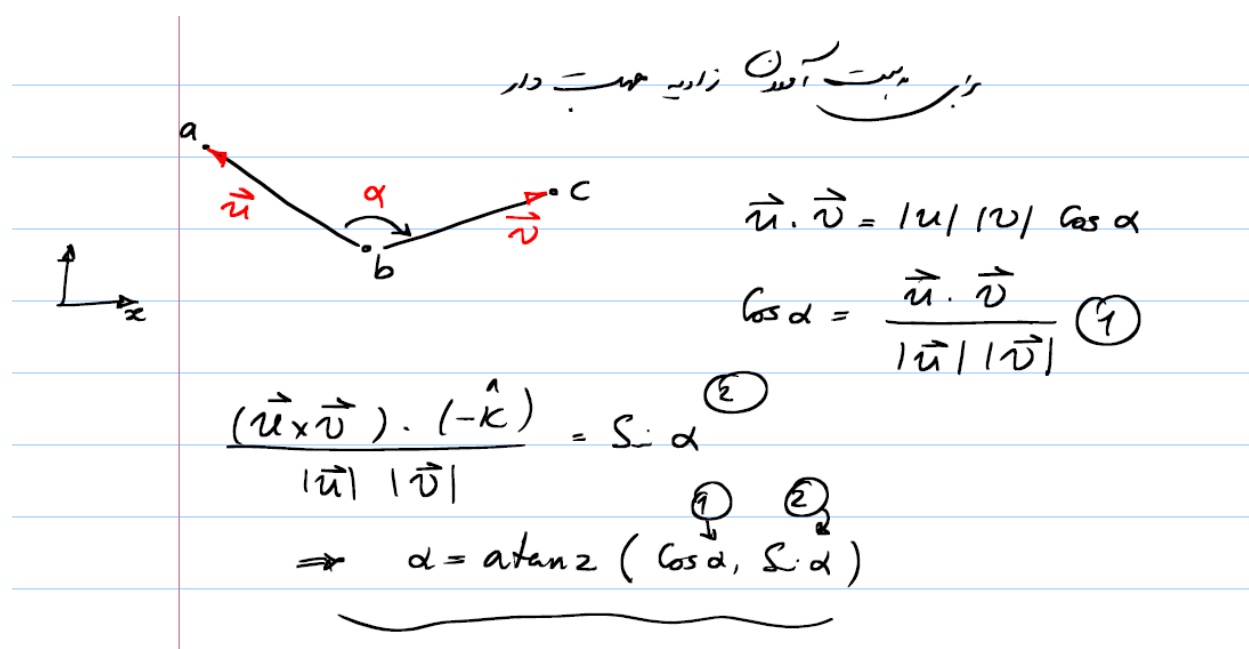 برای بدست آوردن زاویه جهت دار
a
c
α
u⃗
v⃗
b
x
u⃗ . v⃗ = |u| |v| Cos α
Cos α = u⃗ . v⃗ / |u⃗| |v⃗| ①
(u⃗ × v⃗) . (-k̂) / |u⃗| |v⃗| = Sin α ②
① ②
⇒ α = atan2 (Cos α, Sin α)